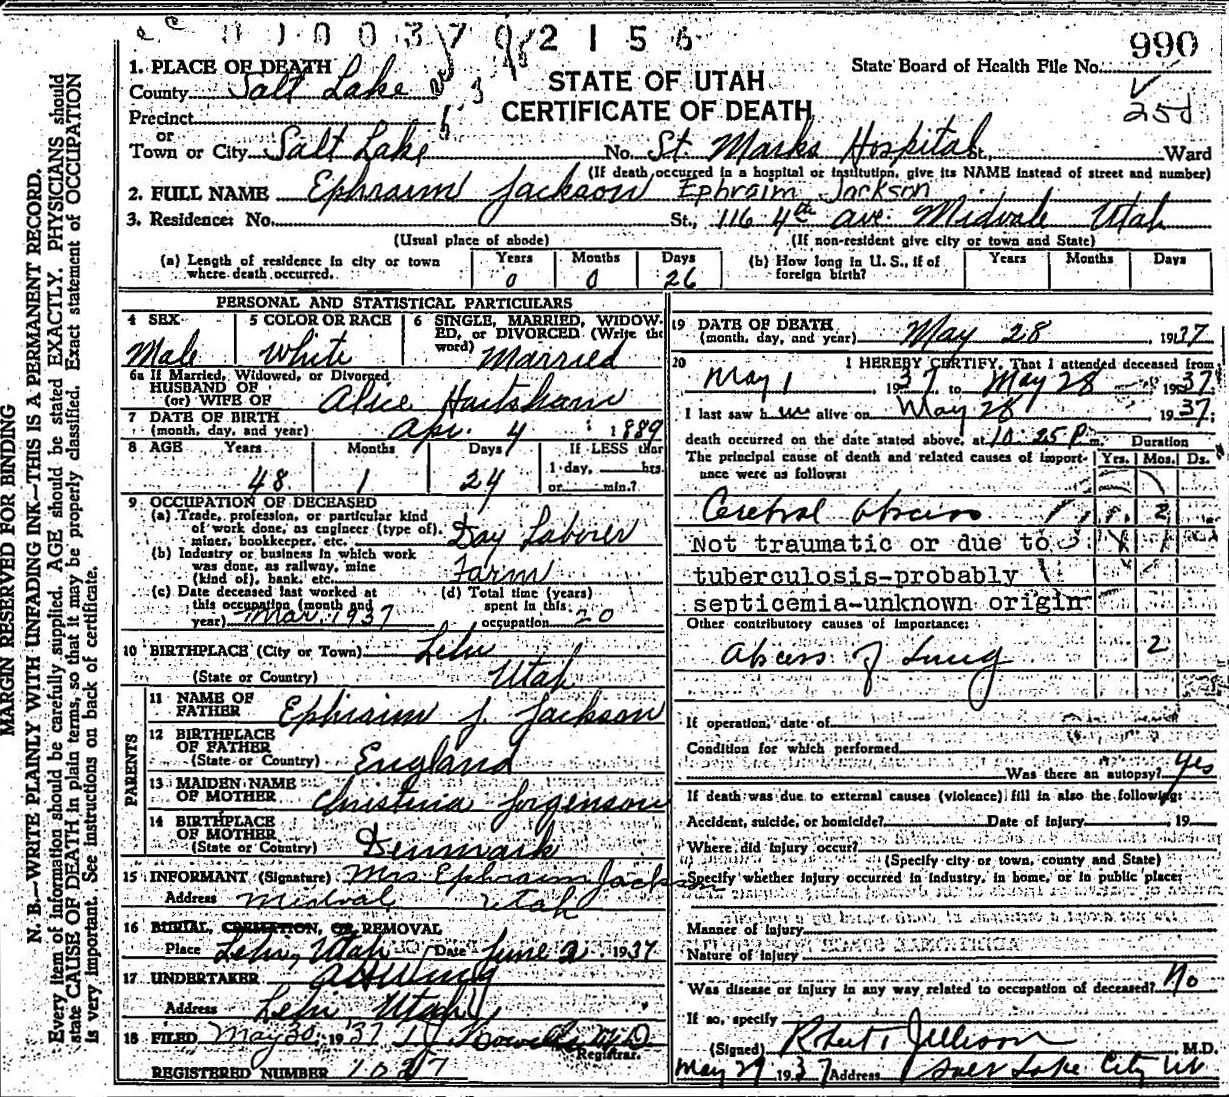 990
State Board of Health File No.
1. PLACE OF DEATH
County Salt Lake
STATE OF UTAH
CERTIFICATE OF DEATH
Precinct
or
Town or City Salt Lake No. St. Marks Hospital St., Ward
(If death occurred in a hospital or institution, give its NAME instead of street and number)
2. FULL NAME Ephraim Jackson Ephraim Jackson
3. Residence: No. St., 116 4th ave. Midvale Utah
(Usual place of abode) (If non-resident give city or town and State)
(a) Length of residence in city or town where death occurred. Years 0 Months 0 Days 26
(b) How long in U. S., if of foreign birth? Years Months Days
PERSONAL AND STATISTICAL PARTICULARS
4 SEX Male
5 COLOR OR RACE White
6 SINGLE, MARRIED, WIDOWED, or DIVORCED. (Write the word) Married
6a If Married, Widowed, or Divorced
HUSBAND OF
(or) WIFE OF Alice
7 DATE OF BIRTH
(month, day, and year) Apr. 4 1889
8 AGE Years 48 Months 1 Days 24 If LESS than 1 day, hrs. or min.?
9 OCCUPATION OF DECEASED
(a) Trade, profession, or particular kind
of work done, as engineer (type of),
miner, bookkeeper, etc. Day Laborer
(b) Industry or business in which work
was done, as railway, mine
(kind of), bank, etc. Farm
(c) Date deceased last worked at
this occupation (month and
year) Mar. 1937
(d) Total time (years)
spent in this
occupation 20
10 BIRTHPLACE (City or Town) Lehi
(State or Country) Utah
PARENTS
11 NAME OF
FATHER Ephraim J. Jackson
12 BIRTHPLACE
OF FATHER
(State or Country) England
13 MAIDEN NAME
OF MOTHER Christina Jorgenson
14 BIRTHPLACE
OF MOTHER
(State or Country) Denmark
15 INFORMANT (Signature) Mrs Ephraim Jackson
Address Midvale Utah
16 BURIAL, CREMATION, OR REMOVAL
Place Lehi, Utah Date June 2 1937
17 UNDERTAKER
Address Lehi Utah
18 FILED May 30, 1937 M.D.
Registrar.
REGISTERED NUMBER 1027
19 DATE OF DEATH
(month, day, and year) May 28, 1937
20 I HEREBY CERTIFY, That I attended deceased from
May 1 1937 to May 28 1937
I last saw him alive on May 28 1937;
death occurred on the date stated above, at 10:25 P.m.
Duration
The principal cause of death and related causes of importance were as follows: Yrs. Mos. Ds.
Cerebral abscess 2
Not traumatic or due to
tuberculosis-probably
septicemia-unknown origin
Other contributory causes of importance:
Abscess of Lung 2
If operation, date of
Condition for which performed
Was there an autopsy? Yes
If death was due to external causes (violence) fill in also the following:
Accident, suicide, or homicide? Date of injury 19
Where did injury occur?
(Specify city or town, county and State)
Specify whether injury occurred in industry, in home, or in public place:
Manner of injury
Nature of injury
Was disease or injury in any way related to occupation of deceased? No
If so, specify
(Signed) Robert M.D.
May 29 1937 Address Salt Lake City Ut
MARGIN RESERVED FOR BINDING
N. B.—WRITE PLAINLY WITH UNFADING INK—THIS IS A PERMANENT RECORD.
Every item of information should be carefully supplied. AGE should be stated EXACTLY. PHYSICIANS should
state CAUSE OF DEATH in plain terms, so that it may be properly classified. Exact statement of OCCUPATION
is very important. See instructions on back of certificate.